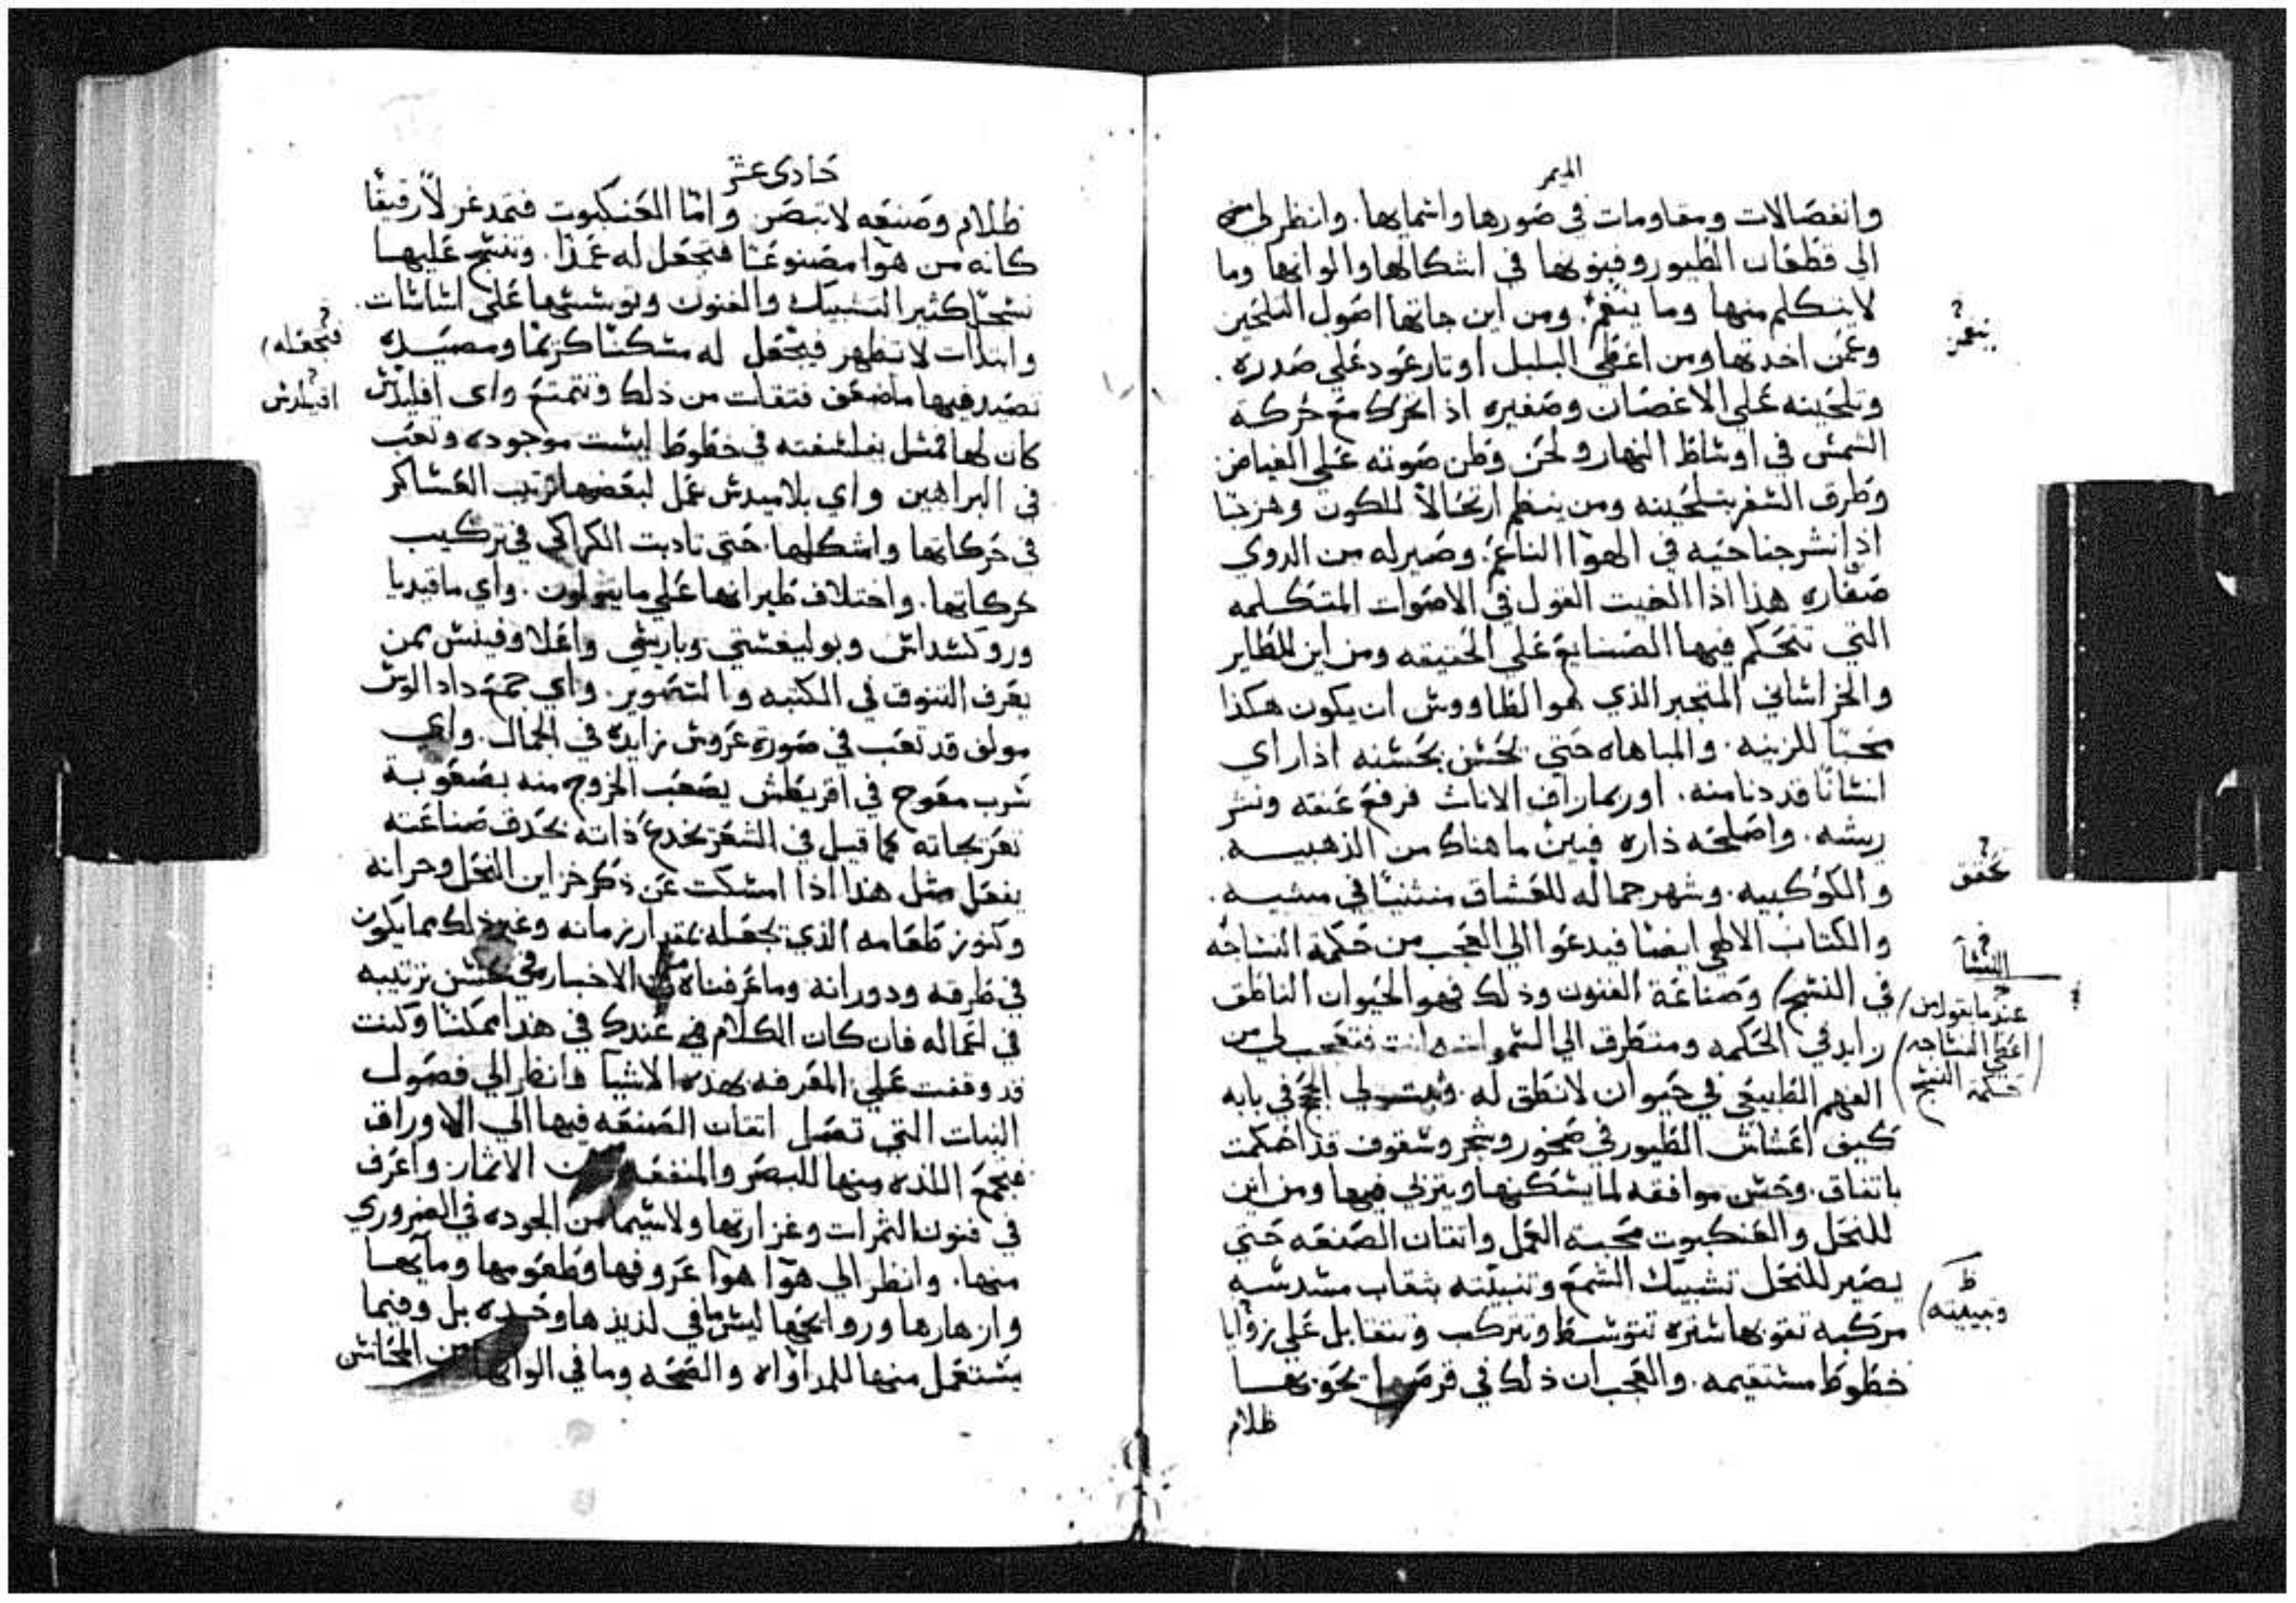 الميمر
وانفصالات ومقاومات في صورها واسمايها. وانظر لي
الي قطعات الطيور وفنونها في اشكالها والوانها وما
لا يتكلم منها وما ينغم. ومن اين جاتها اصول التلحين
وعمن اخدتها ومن اعطي البلبل اوتار عود علي صدره.
وتلحينه علي الاغصان وصفيره اذا تحرك مع حركة
الشمس في اوساط النهار ولحن وطن صوته علي الغياض
وطرف السفر بتلحينه ومن ينظم ارتحالا للكون وهزجا
اذا نشر جناحيه في الهوا الناعم. وصير له من الدوي
صفاره هذا اذا الغيت القول في الاصوات المتكلمه
التي تتحكم فيها الصنايع علي الحقيقه ومن اين للطاير
والخراساني المتجبر الذي هو الطاووس ان يكون هكذا
محبا للزينه. والمباهاه حتي يحس بحسنه اذا راي
انسانا قد دنا منه. او ربما راف الاناث فرفع عنقه ونشر
ريشه. واصلحه داره فبين ما هناك من الذهبيه
والكوكبيه. وشهر جماله للعشاق منثنيا في مشيه.
والكتاب الالاهي ايضا فيدعوا الي العجب من حكمة النساجه
في النسج وصناعة الفنون وذلك فهو الحيوان الناطق
زايد في الحكمه ومتطرق الي السمو انت فتعجب لي من
الفهم الطبيعي في حيوان لا نطق له. الحجج في بابه
كيف اعشاش الطيور في صخور وشجر وسقوف قد احكمت
باتفاق. وحسن موافقه لما يسكنها ويتربي فيها ومن اين
للنحل والعنكبوت محبة العمل واتقان الصنعه حتي
يصير للنحل تشبيك الشمع وتنبيته بثقاب مسدسه
مركبه تقونها ستره تتوسط وتتركب وتتقابل علي زوايا
خطوط مستقيمه. والعجب ان ذلك في قرصها يحق بها
ظلام
ينغمز
تحقق
النسا
عندما يقول من
اعطي النساجه
حكمة النسج
وتبيينه
حادي عشر
ظلام وصنعه لا تبصر واما العنكبوت فتمد غزلا رقيقا
كانه من هوا مصنوعا فتجعل له عمدا. وتنسج عليها
نسجا كثير التشبيك والفنون وتوسسها علي اساسات.
وابتدات لا تظهر فيجعل له مسكنا كريما ومصيده
تصيد فيها ما ضعف فتقات من ذلك وتتمتع واي اقليدس
كان لها فمثل بفلسفته في خطوط ليست موجوده وتعب
في البراهين واي بلاميدس عمل لبعضها ترتيب العساكر
في حركاتها واشكلها. حتي تادبت الكراكي في تركيب
حركاتها. واختلاف طيرانها علي ما يقولون. واي مافيديا
وروكسداس وبوليغستي وباريسي واغلاوفينس ممن
يعرف التنوق في الكتبه والتصوير. واي جمع داد الوس
مولف قد تعب في صورة عروس زايده في الجمال. واي
سرب مقوح في اقريطش يصعب الخروج منه بصعوبة
تعريجاته كما قيل في الشعر يخدع ذاته بحدف صناعته
يفعل مثل هذا اذا امسكت عن ذكر خزاين النحل وخزانه
وكنوز طعامه الذي يجعله بمقدار زمانه وغير ذلك مما يكون
في طرقه ودورانه وما عرفناه من الاخبار في حسن ترتيبه
في اعماله فان كان الكلام في عندك في هذا ممكنا وكنت
قد وقفت علي المعرفه بهذه الاشيا فانظر الي فصول
النبات التي تصل اتقان الصنعه فيها الي الاوراق
فيجمع اللذه منها للبصر والمنفعه من الاثمار. واعرف
في فنون الثمرات وغزارتها ولا سيما من الجوده في الضروري
منها. وانظر الي هوا هوا عروقها وطعومها ومايها
وازهارها وروايحها ليس ما في لذيذها وحده بل وفيما
يستعمل منها للمداواه والصحه وما في الوانها من المحاسن
فتجعله
اقيلدس